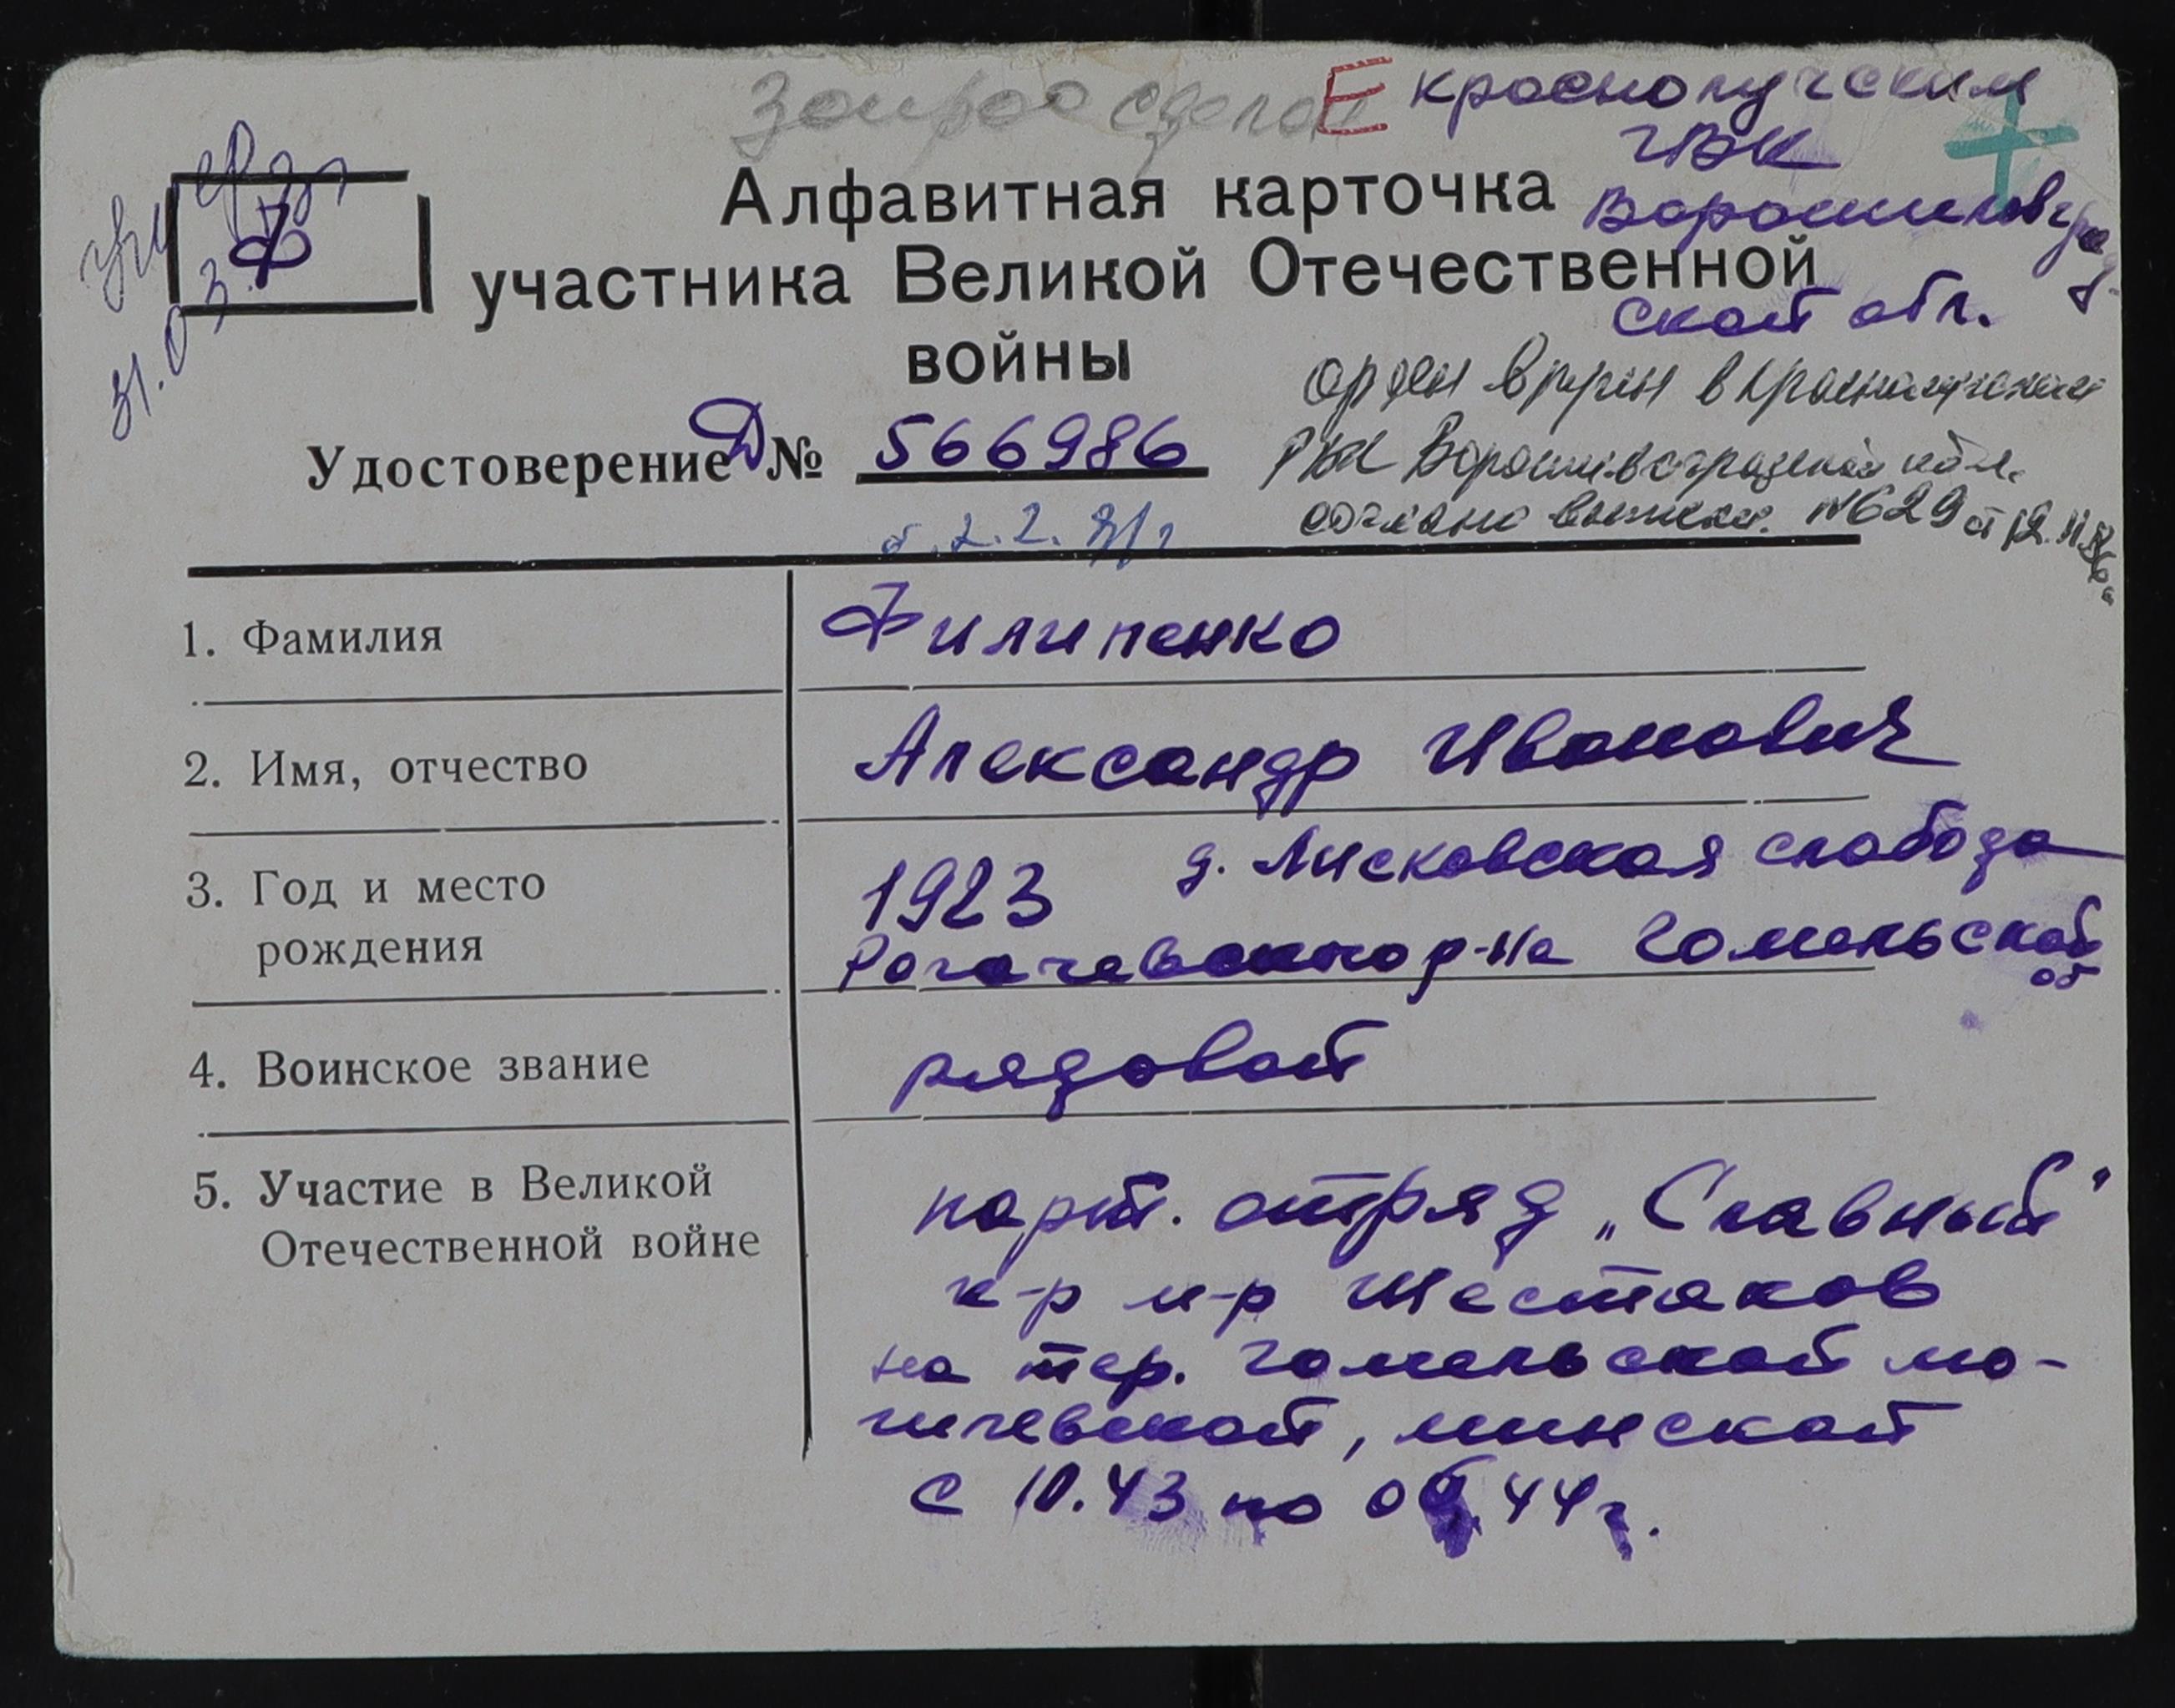 Запрос сделан Е Краснолучским
ГВК
Ворошиловград-
ской обл.
Ф
31.03.
Алфавитная карточка
участника Великой Отечественной
войны
Удостоверение Д № 566986
от 2.2.81г
орден вручен в Краснолучском
РВК Ворошиловградской обл.
согласно выписки. №629 от 12.11.86г.
1. Фамилия Филипенко
2. Имя, отчество Александр Иванович
3. Год и место рождения 1923 д. Лисковская слобода
Рогачевского р-на Гомельской об
4. Воинское звание рядовой
5. Участие в Великой
Отечественной войне парт. отряд „Славный"
к-р м-р Шестаков
на тер. Гомельской мо-
гилевской, минской
с 10.43 по 06.44г.